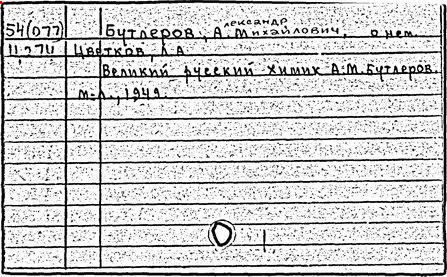 54(077) Бутлеров, Александр Михайлович, о нем.
Ц274 Цветков, Л.А.
Великий русский химик А.М.Бутлеров.
М-Л., 1949.